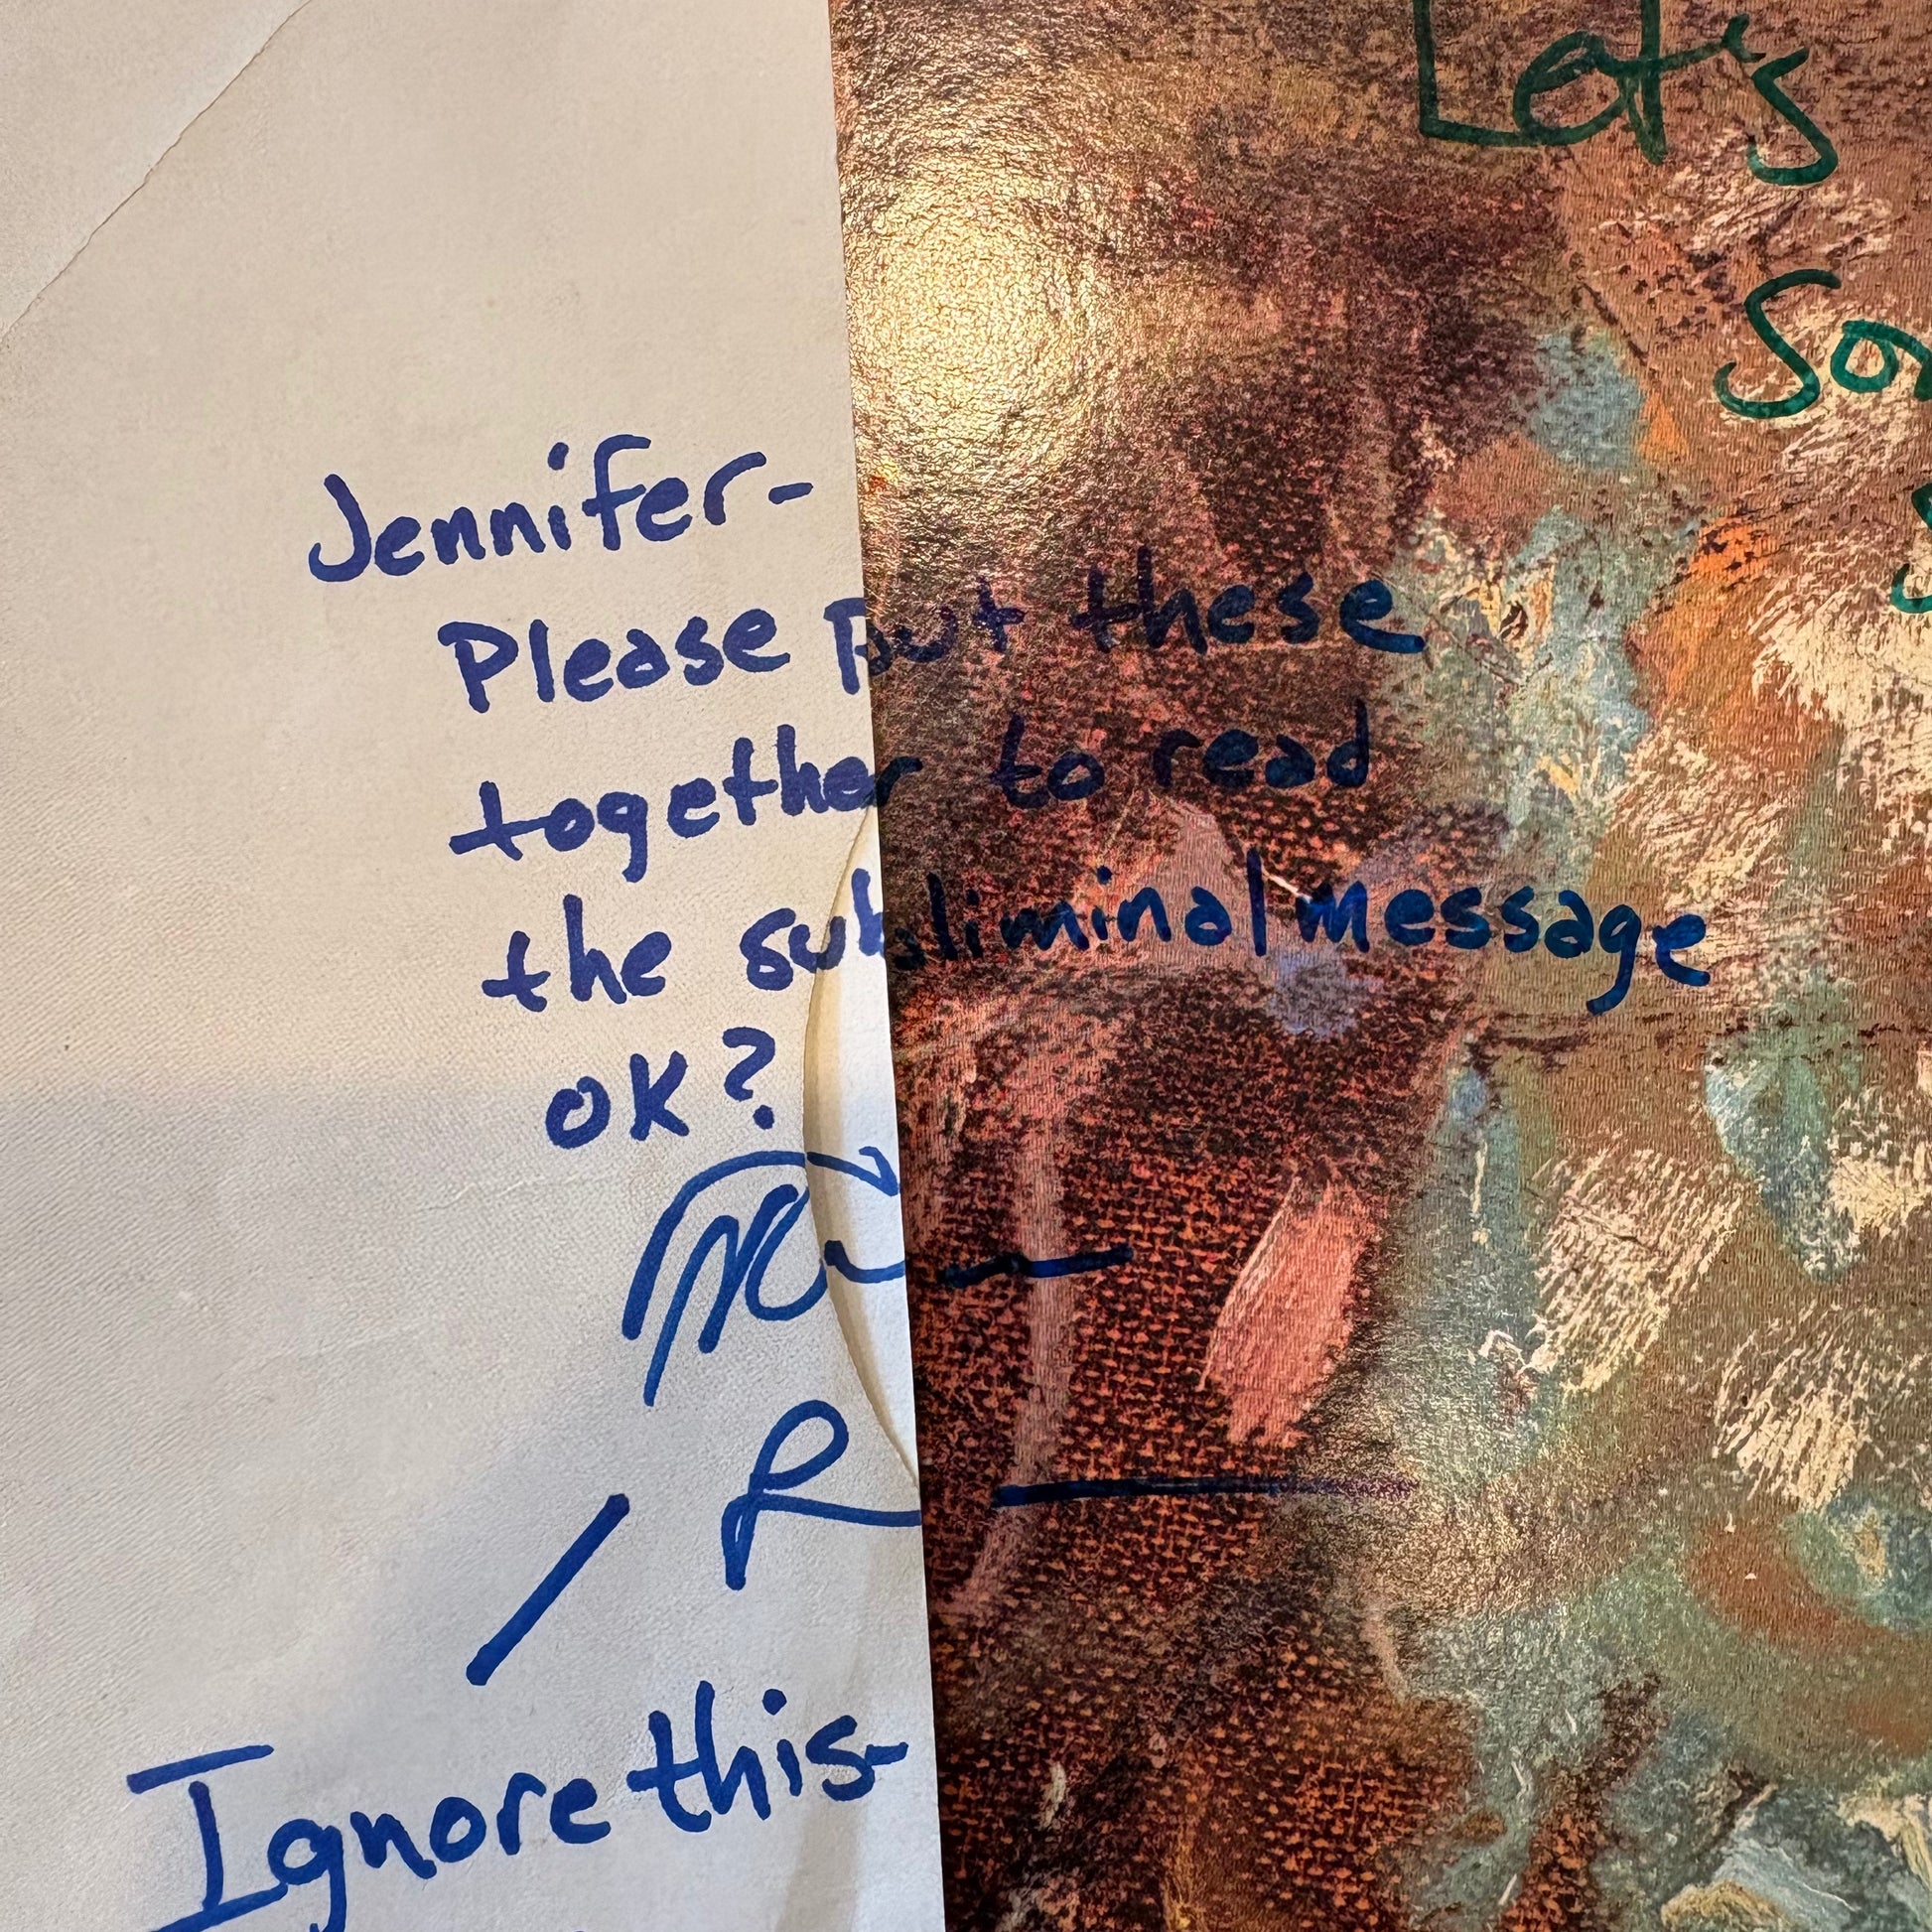 Let's
Jennifer-
Please put these
together to read
the subliminal message
OK?
R
Ignore this-